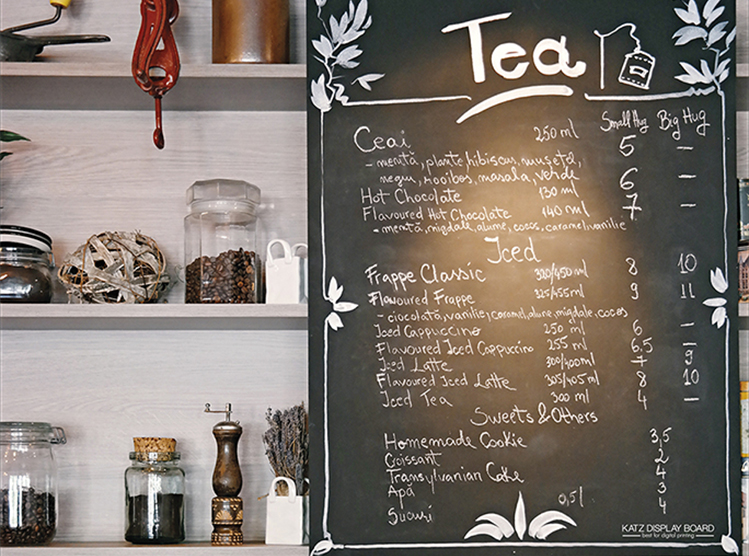 Tea
Small Hug Big Hug
Ceai 250 ml 5 —
- mentă, plante, hibiscus, mușețel,
negru, rooibos, masala, verde
Hot Chocolate 130 ml 6 —
Flavoured Hot Chocolate 140 ml 7 —
- mentă, migdale, alune, cocos, caramel, vanilie
Iced
Frappe Classic 320/450 ml 8 10
Flavoured Frappe 325/455 ml 9 11
- ciocolată, vanilie, caramel, alune, migdale, cocos
Iced Cappuccino 250 ml 6 —
Flavoured Iced Cappuccino 255 ml 6.5 —
Iced Latte 300/400 ml 7 9
Flavoured Iced Latte 305/405 ml 8 10
Iced Tea 300 ml 4 —
Sweets & Others
Homemade Cookie 3,5
Croissant 2
Transylvanian Cake 4
Apă 3
Sucuri 0,5l 4
KATZ DISPLAY BOARD
best for digital printing